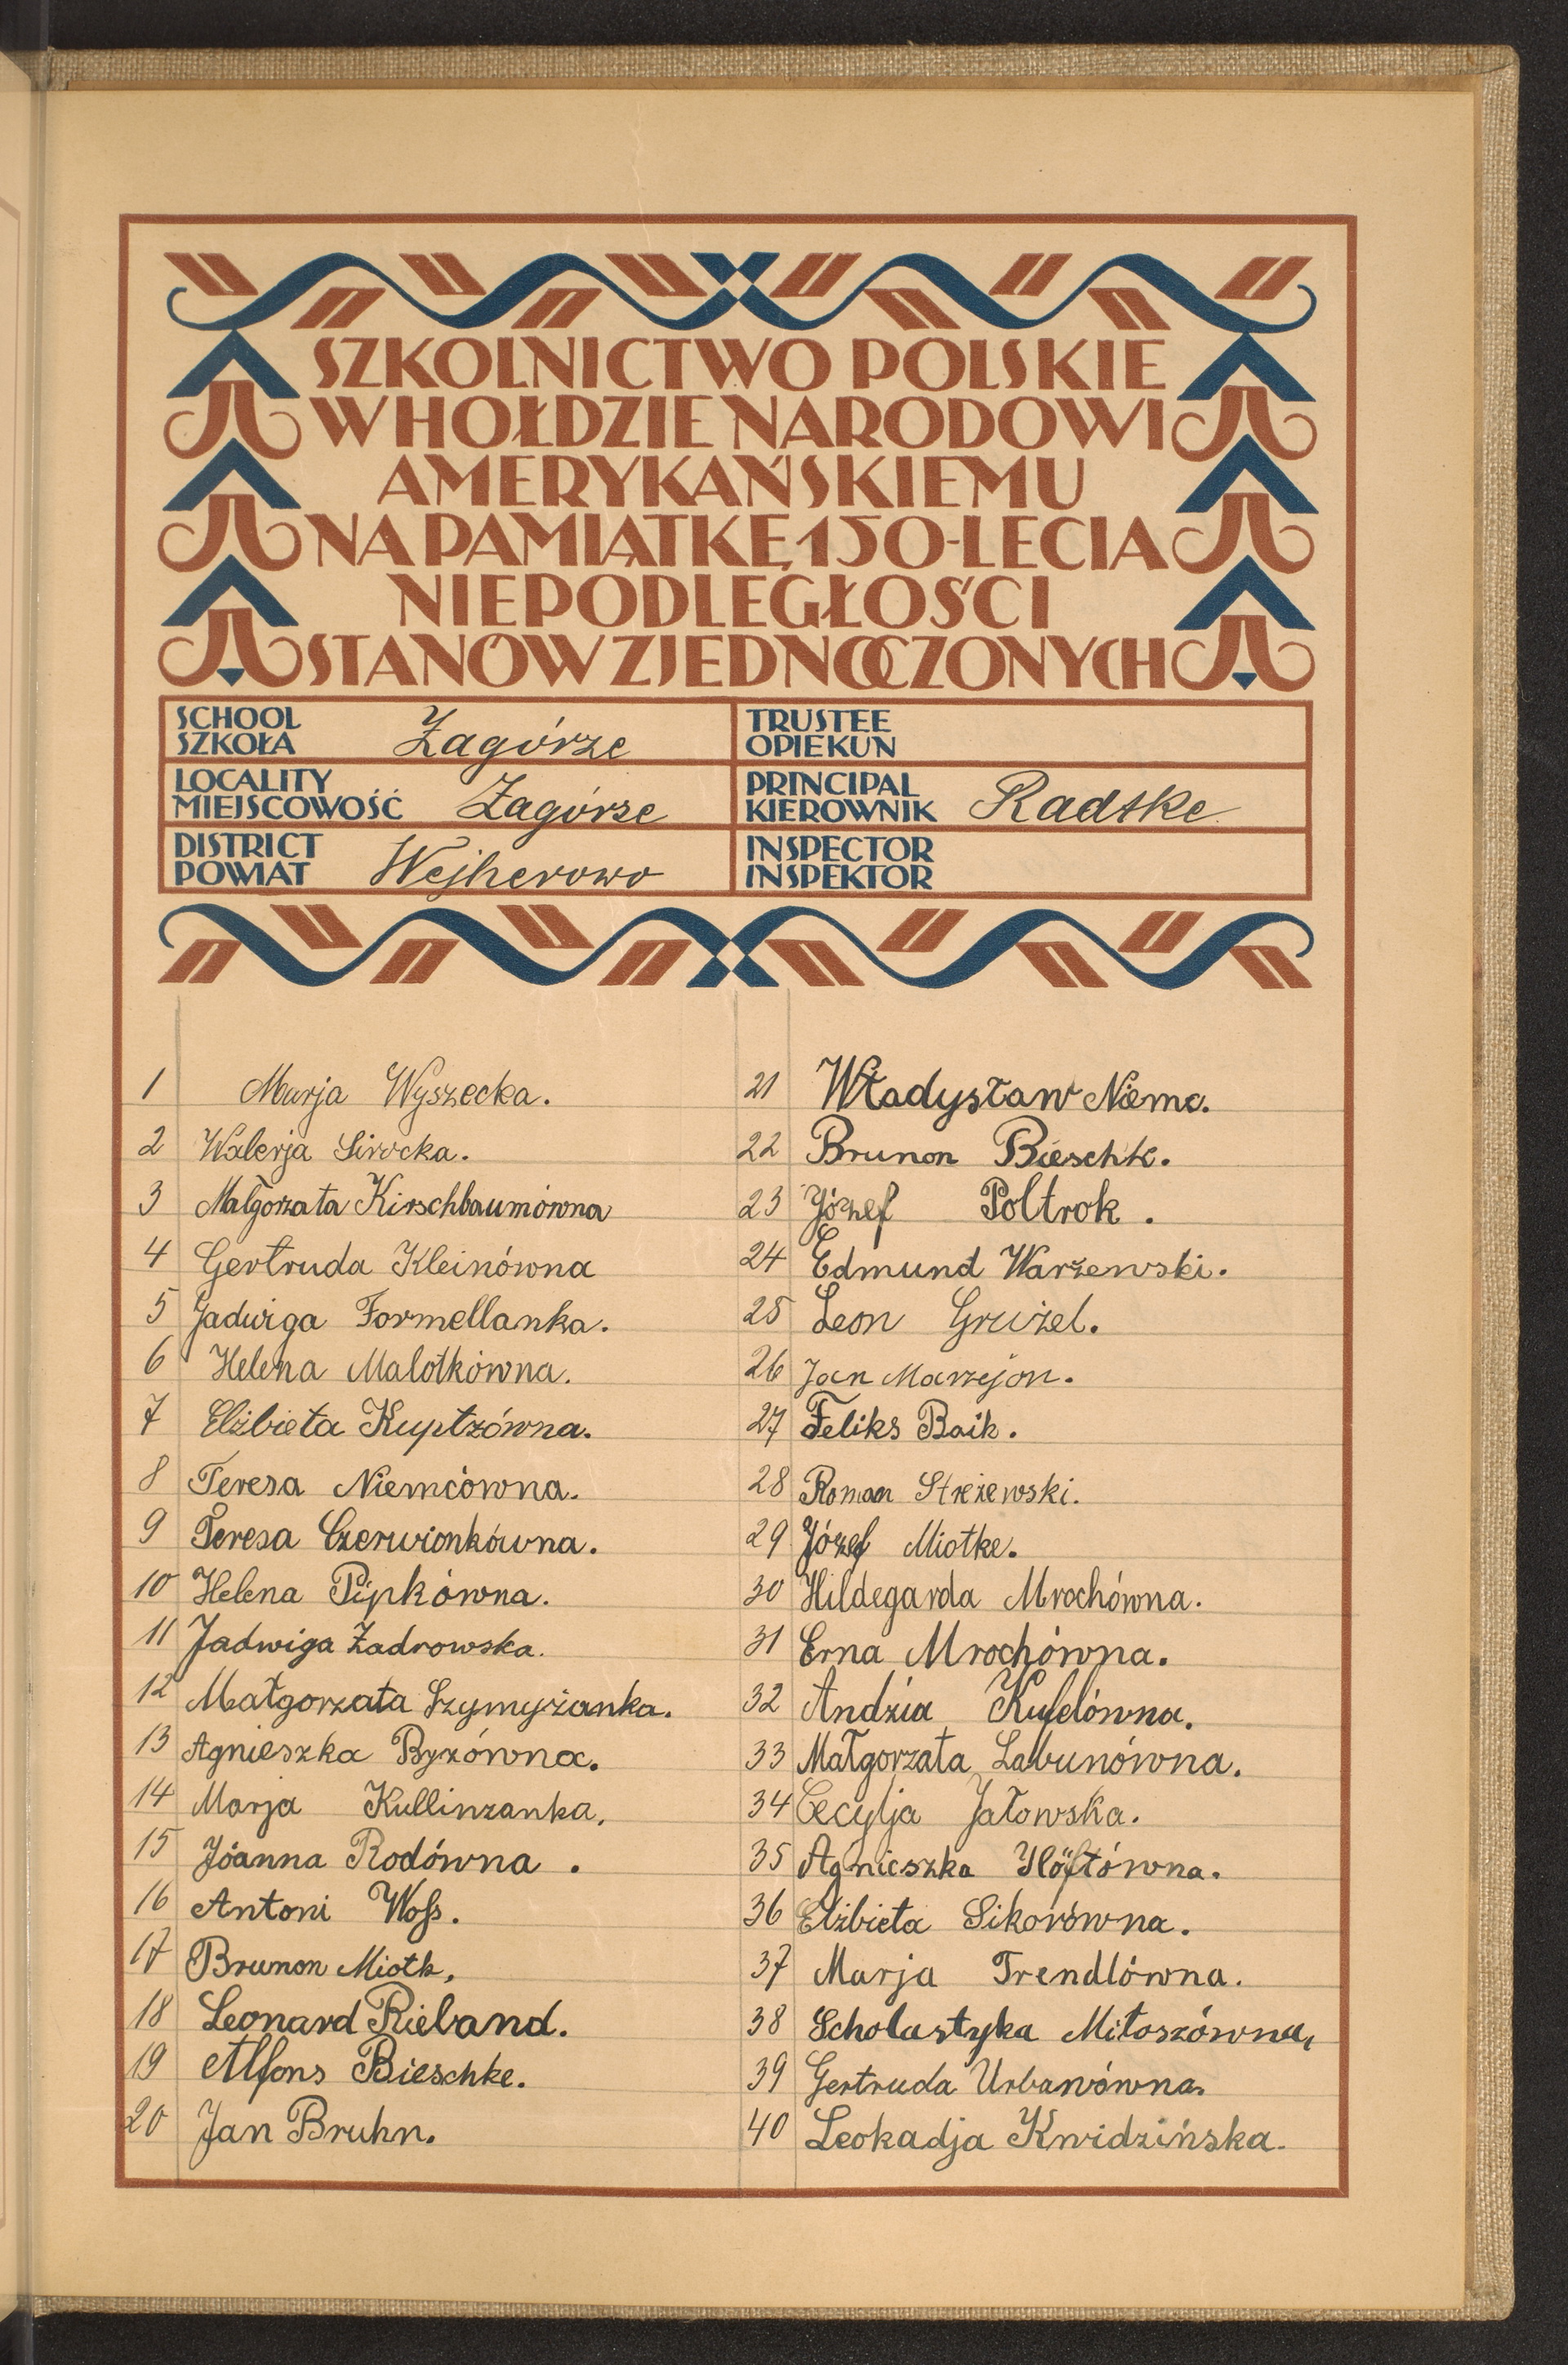 SZKOLNICTWO POLSKIE
W HOŁDZIE NARODOWI
AMERYKAŃSKIEMU
NA PAMIĄTKĘ 150-LECIA
NIEPODLEGŁOŚCI
STANÓW ZJEDNOCZONYCH
SCHOOL
SZKOŁA Zagórze
LOCALITY
MIEJSCOWOŚĆ Zagórze
DISTRICT
POWIAT Wejherowo
TRUSTEE
OPIEKUN
PRINCIPAL
KIEROWNIK Radtke
INSPECTOR
INSPEKTOR
1 Marja Wyszecka.
2 Walerja Sirocka.
3 Małgorzata Kirschbaumówna
4 Gertruda Kleinówna
5 Jadwiga Formellanka.
6 Helena Malotkówna.
7 Elżbieta Kuptzówna.
8 Teresa Niemcówna.
9 Teresa Czerwionkówna.
10 Helena Pipkówna.
11 Jadwiga Zadrowska.
12 Małgorzata Szymyżanka.
13 Agnieszka Byzówna.
14 Marja Kullinzanka.
15 Jóanna Rodówna.
16 Antoni Woſs.
17 Brunon Miotk,
18 Leonard Rieband.
19 Alfons Bieschke.
20 Jan Bruhn.
21 Władysław Niemc.
22 Brunon Bieschk.
23 Józef Poltrok.
24 Edmund Warżewski.
25 Leon Grużel.
26 Jan Marzejon.
27 Feliks Baik.
28 Roman Streżewski.
29 Józef Miotke.
30 Hildegarda Mrochówna.
31 Erna Mrochówna.
32 Andzia Kufelówna.
33 Małgorzata Labunówna.
34 Cecylja Jatowska.
35 Agnieszka Höftówna.
36 Elżbieta Sikorówna.
37 Marja Trendlówna.
38 Scholastyka Miłoszówna,
39 Gertruda Urbanówna.
40 Leokadja Kwidzińska.